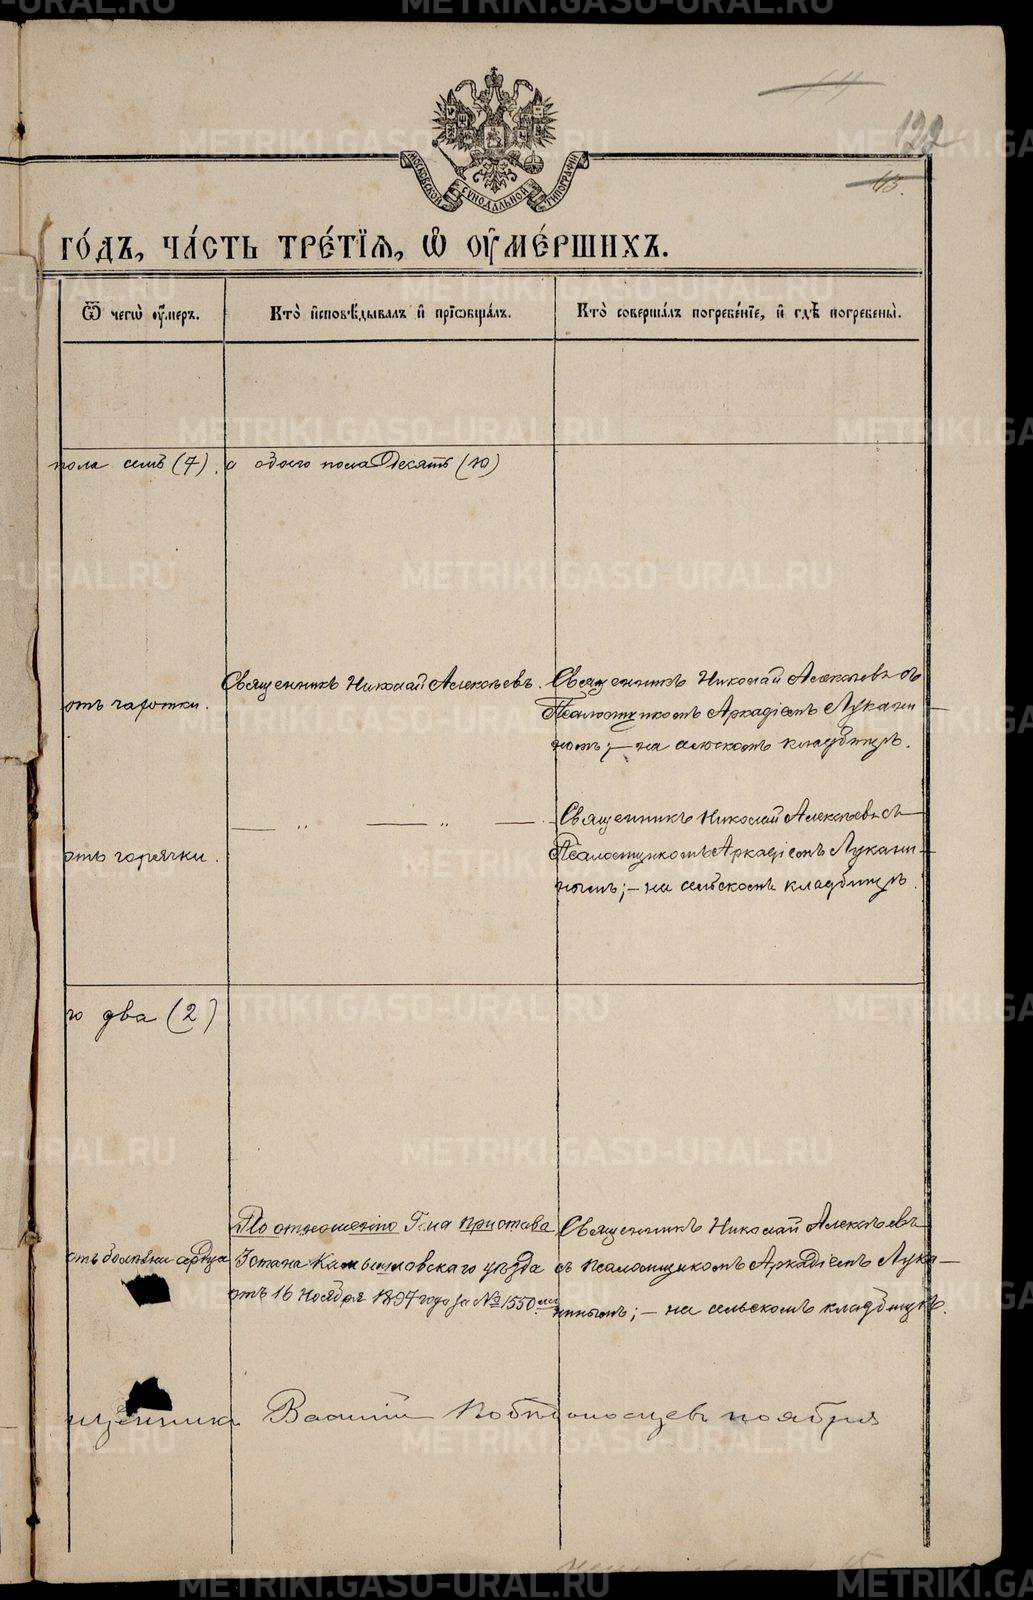 122
МОСКОВСКОЙ СѴНОДАЛЬНОЙ ТИПОГРАФІИ
63.
ГО́ДЪ, ЧА́СТЬ ТРЕ́ТІѦ, Ѡ҆ ОУ҆МЕ́РШИХЪ.
Ѿ чегѡ̀ оу҆́меръ.
Кто̀ и҆сповѣ́дывалъ и҆ прїѡбща́лъ.
Кто̀ соверша́лъ погребе́нїе, и҆ гдѣ̀ погребены̀.
пола семь (7), а обоего пола Десять (10)
отъ чахотки.
Священникъ Николай Алексѣевъ.
Священникъ Николай Алексѣевъ съ
Псаломщикомъ Аркадіемъ Лукани
нымъ; – на сельскомъ кладбищѣ.
отъ горячки.
— „ — „ —
Священникъ Николай Алексѣевъ съ
Псаломщикомъ Аркадіемъ Лукани–
нымъ; – на сельскомъ кладбищѣ.
го два (2)
отъ болѣзни сердца
По отношенію Г-на Пристава
3 стана Камышловскаго уѣзда
отъ 16 Ноября 1897 года за № 1550
Священникъ Николай Алексѣевъ
съ псаломщикомъ Аркадіемъ Лука–
нинымъ; – на сельскомъ кладбищѣ.
щенникъ Василій Побѣдоносцевъ ноября
METRIKI.GASO-URAL.RU